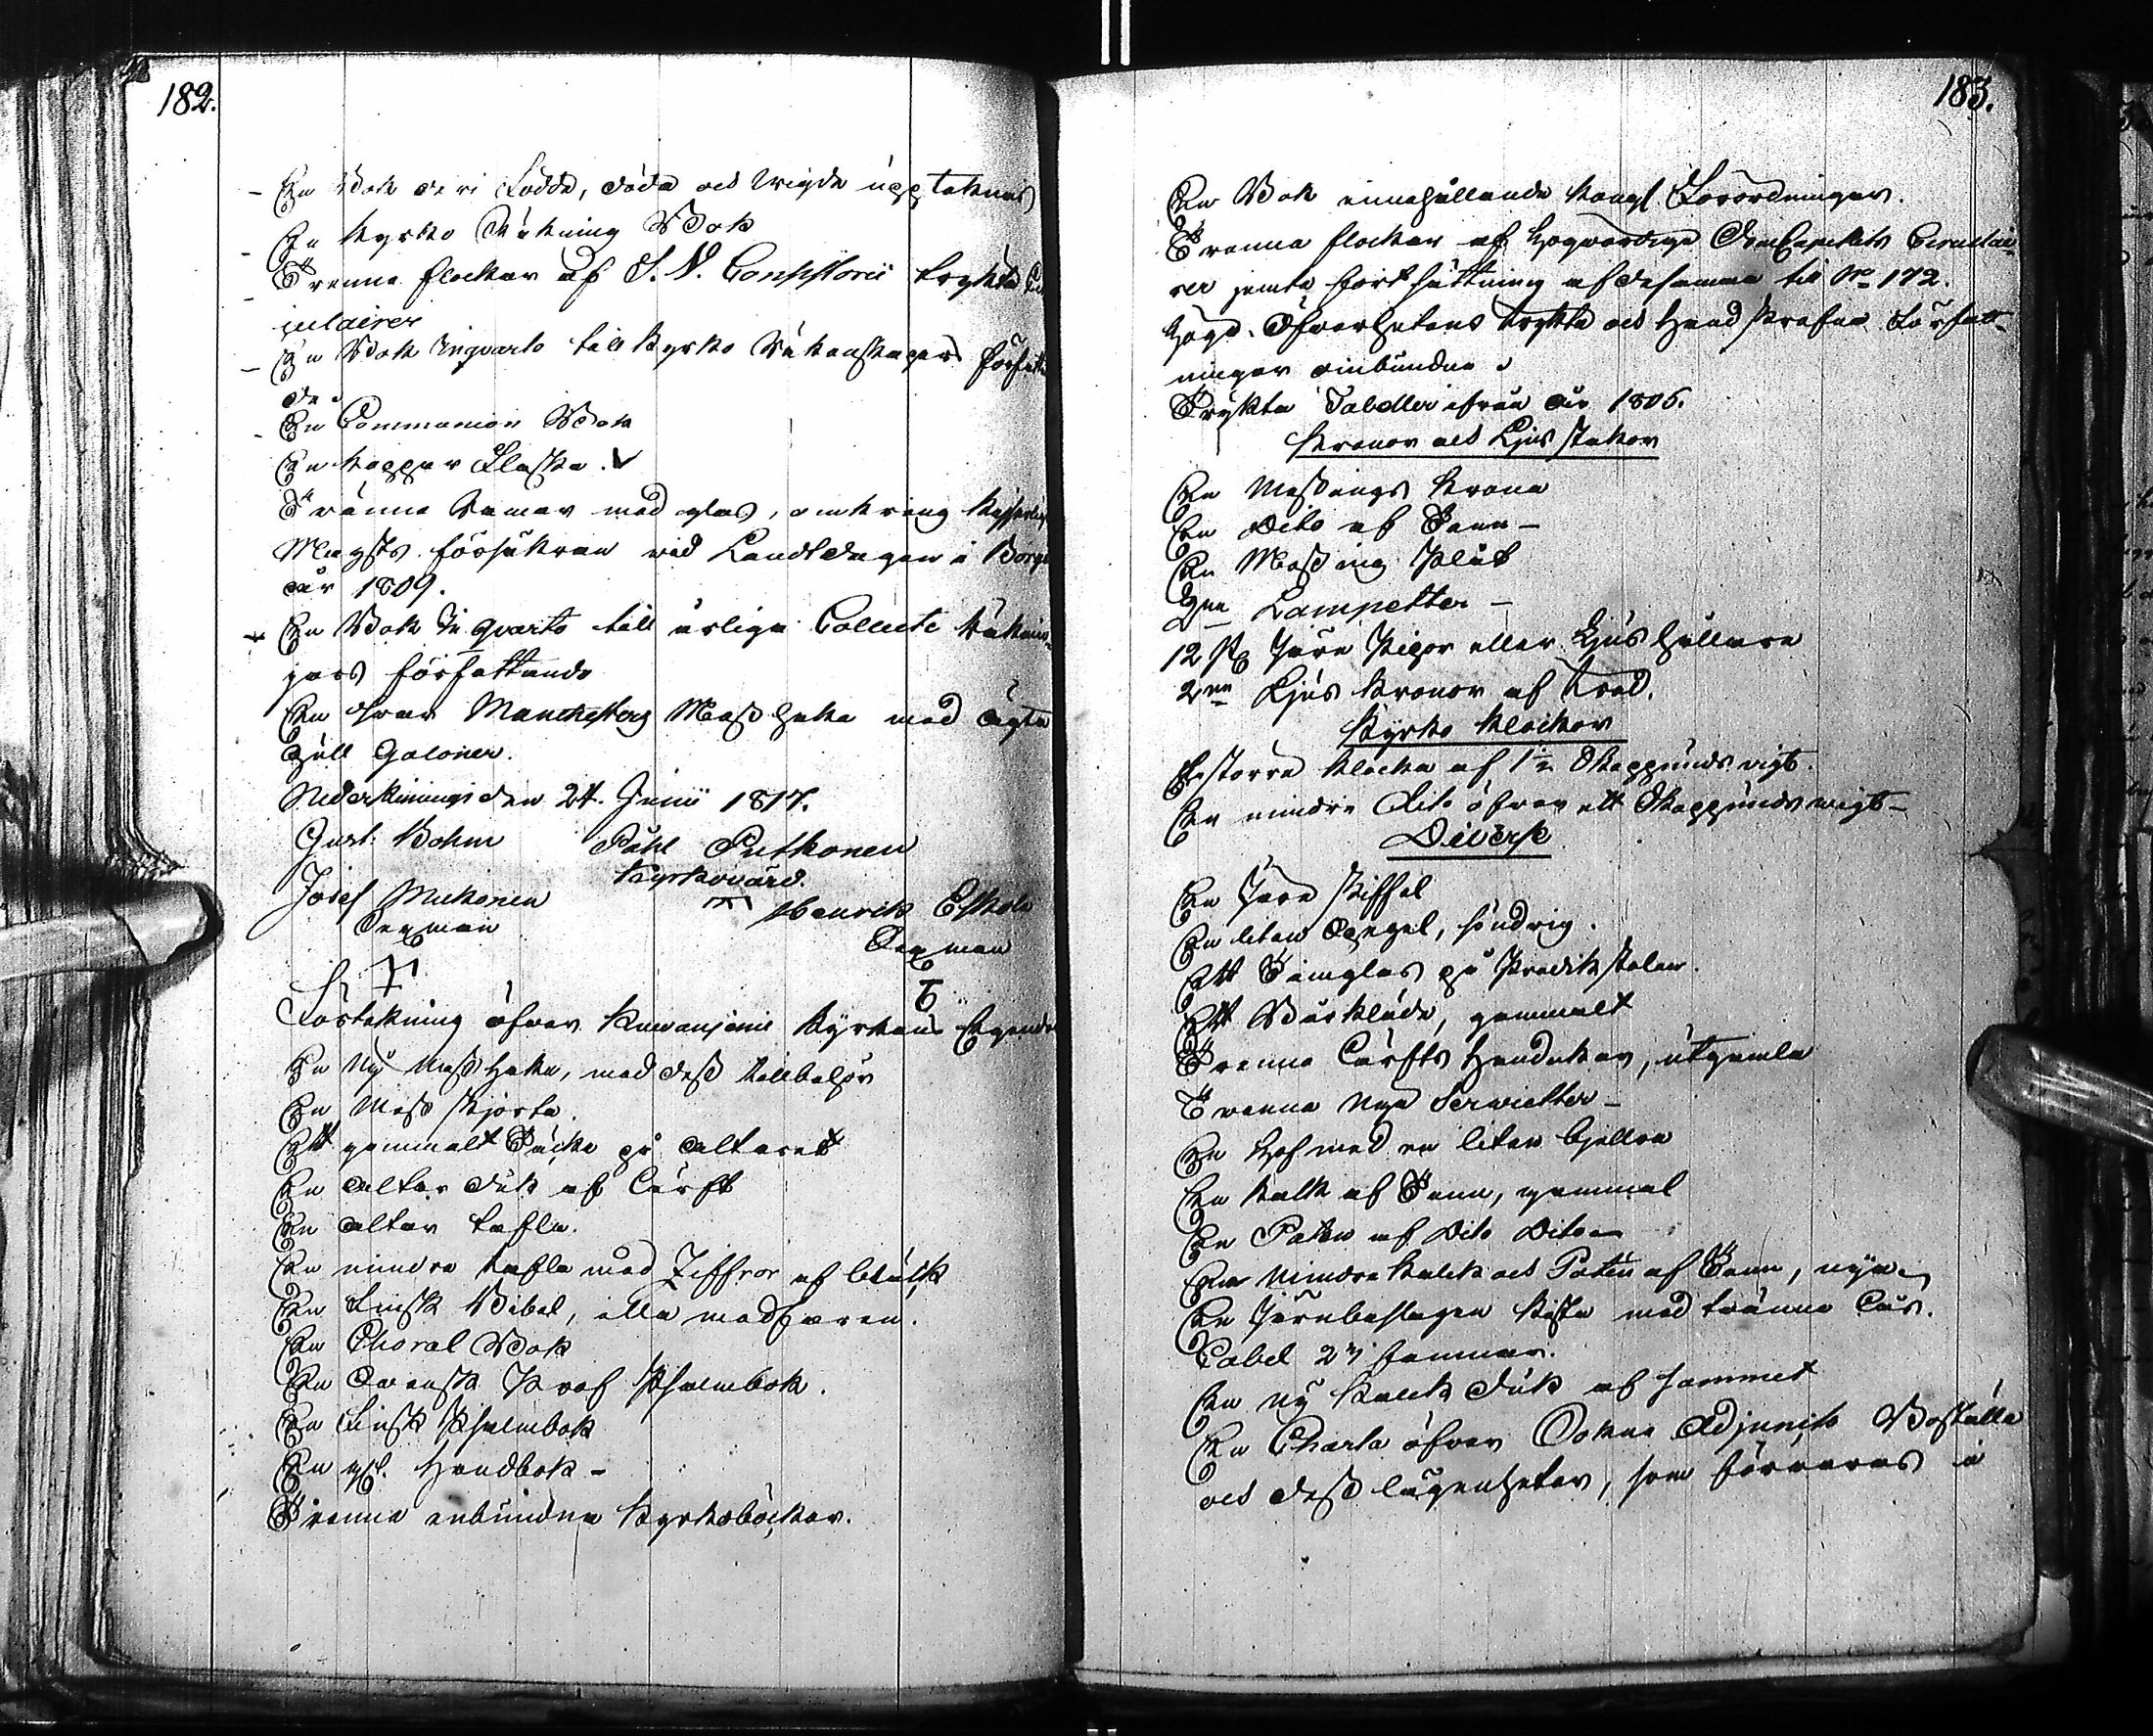 182.
En Bok deri Födde, döde och wigde upptecknas
En Kyrko Räkning Bok
Trenne flockar af S. V. Consistorii tryckta Cir
culairer
En Bok in quarto till Kyrko Räkenskapers författa
de
En Communion Bok
En koppar Flaska.
Tvänne Ramar med glas, omkring Kejserliga
Maj:sts försäkran vid Landtdagen i Borgå
år 1809.
En Bok In quarto till årliga Collecte Räknin-
gars författande
En svar Manchesters Mass hake med ägta
Gull Galoner.
Nederkiminge den 24. Junii 1817.
Gust: Bohm Påhl Puthonen
Kyrkovärd.
Josef Mukonen Henrik Eskola
Sexman Sexman
Förtekning öfver Kuivanjemi Kyrkans Egendo
En Ny Mass hake, med dess tillbehör
En Mess skjorta.
Ett gammalt Täcke på altaret
En altar duk af Lärft
En altar tafla.
En mindre tafla med Ziffror af bläck
En Finsk Bibel, illa medfaren.
En Choral Bok
En Svensk Prof Psalmbok.
En Finsk Psalmbok
En Handbok -
Trenne inbundna Kyrkoböcker.
183.
En Bok innehållande Kongl. Förordningar.
Trenne flockar af högvördige DomCapitels Circulai-
rer jemte fortsättning af desamma till No 172.
Höga Öfverhetens tryckta och Handskrefne Författ-
ningar oinbundne.
Tryckta Tabeller ifrån år 1805.
Kronor och Ljus stakar
En Messings Krona
En Dito af Tenn -
En Messing Plåt
Lampetter -
12 st Jern Pipor eller Ljus hållare
2ne Ljus Kronor af träd.
Kyrko Klockor
En större Klocka af 1½ Skeppunds vigt.
En mindre Dito öfver ett Skeppunds wigt -
Diverse
En Jern Skiffel
En liten Spegel, söndrig.
Ett Timglas på Predikstolen.
Ett Bårkläde, gammalt
Trenne Lärfts Handukar, utgamla
Tvenne Nya Servietter -
En Hof med en liten bjellra
En kalk af Tenn, gammal
En Paten af Dito Dito -
En Mindre Kalck och Paten af Tenn, nya
En Jernbeslagen Kista med tvänne Lås.
Cabel 27 famnar.
En ny Kalck duk af sammet
En Charta öfver Adjuncts Boställe
och dess lägenheter, som förvaras i